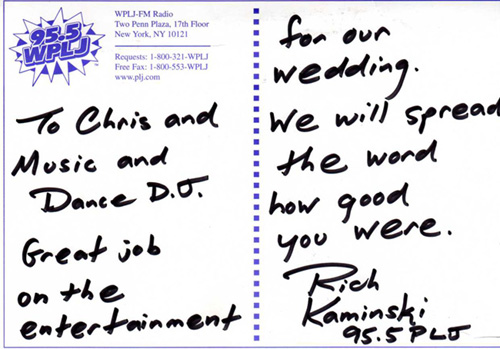 95.5
WPLJ
WPLJ-FM Radio
Two Penn Plaza, 17th Floor
New York, NY 10121
Requests: 1-800-321-WPLJ
Free Fax: 1-800-553-WPLJ
www.plj.com
To Chris and
Music and
Dance D.J.
Great job
on the
entertainment
for our
wedding.
We will spread
the word
how good
you were.
Rich
Kaminski
95.5 PLJ